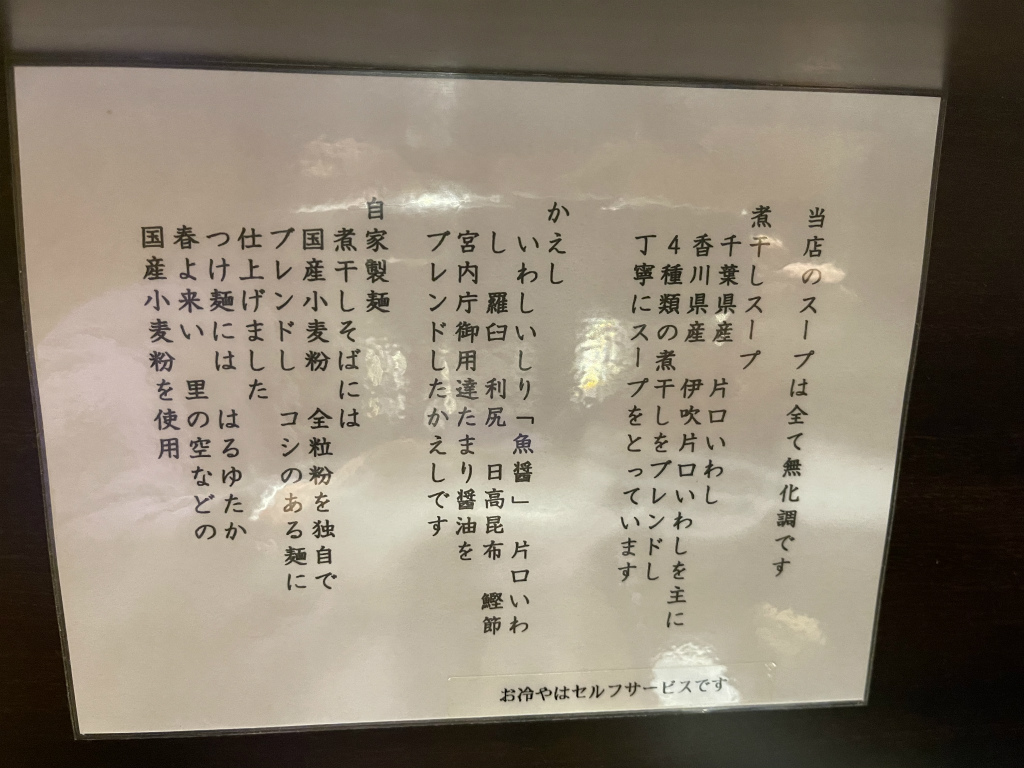 当店のスープは全て無化調です
煮干しスープ
千葉県産 片口いわし
香川県産 伊吹片口いわしを主に
4種類の煮干しをブレンドし
丁寧にスープをとっています
かえし
いわしいしり「魚醤」 片口いわ
し 羅臼 利尻 日高昆布 鰹節
宮内庁御用達たまり醤油を
ブレンドしたかえしです
自家製麺
煮干しそばには
国産小麦粉 全粒粉を独自で
ブレンドし コシのある麺に
仕上げました
つけ麺には はるゆたか
春よ来い 里の空などの
国産小麦粉を使用
お冷やはセルフサービスです